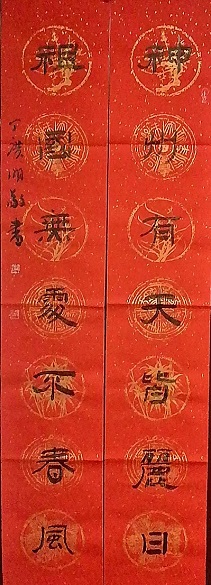 神州有天皆麗日
祖國無處不春風
丁敬書